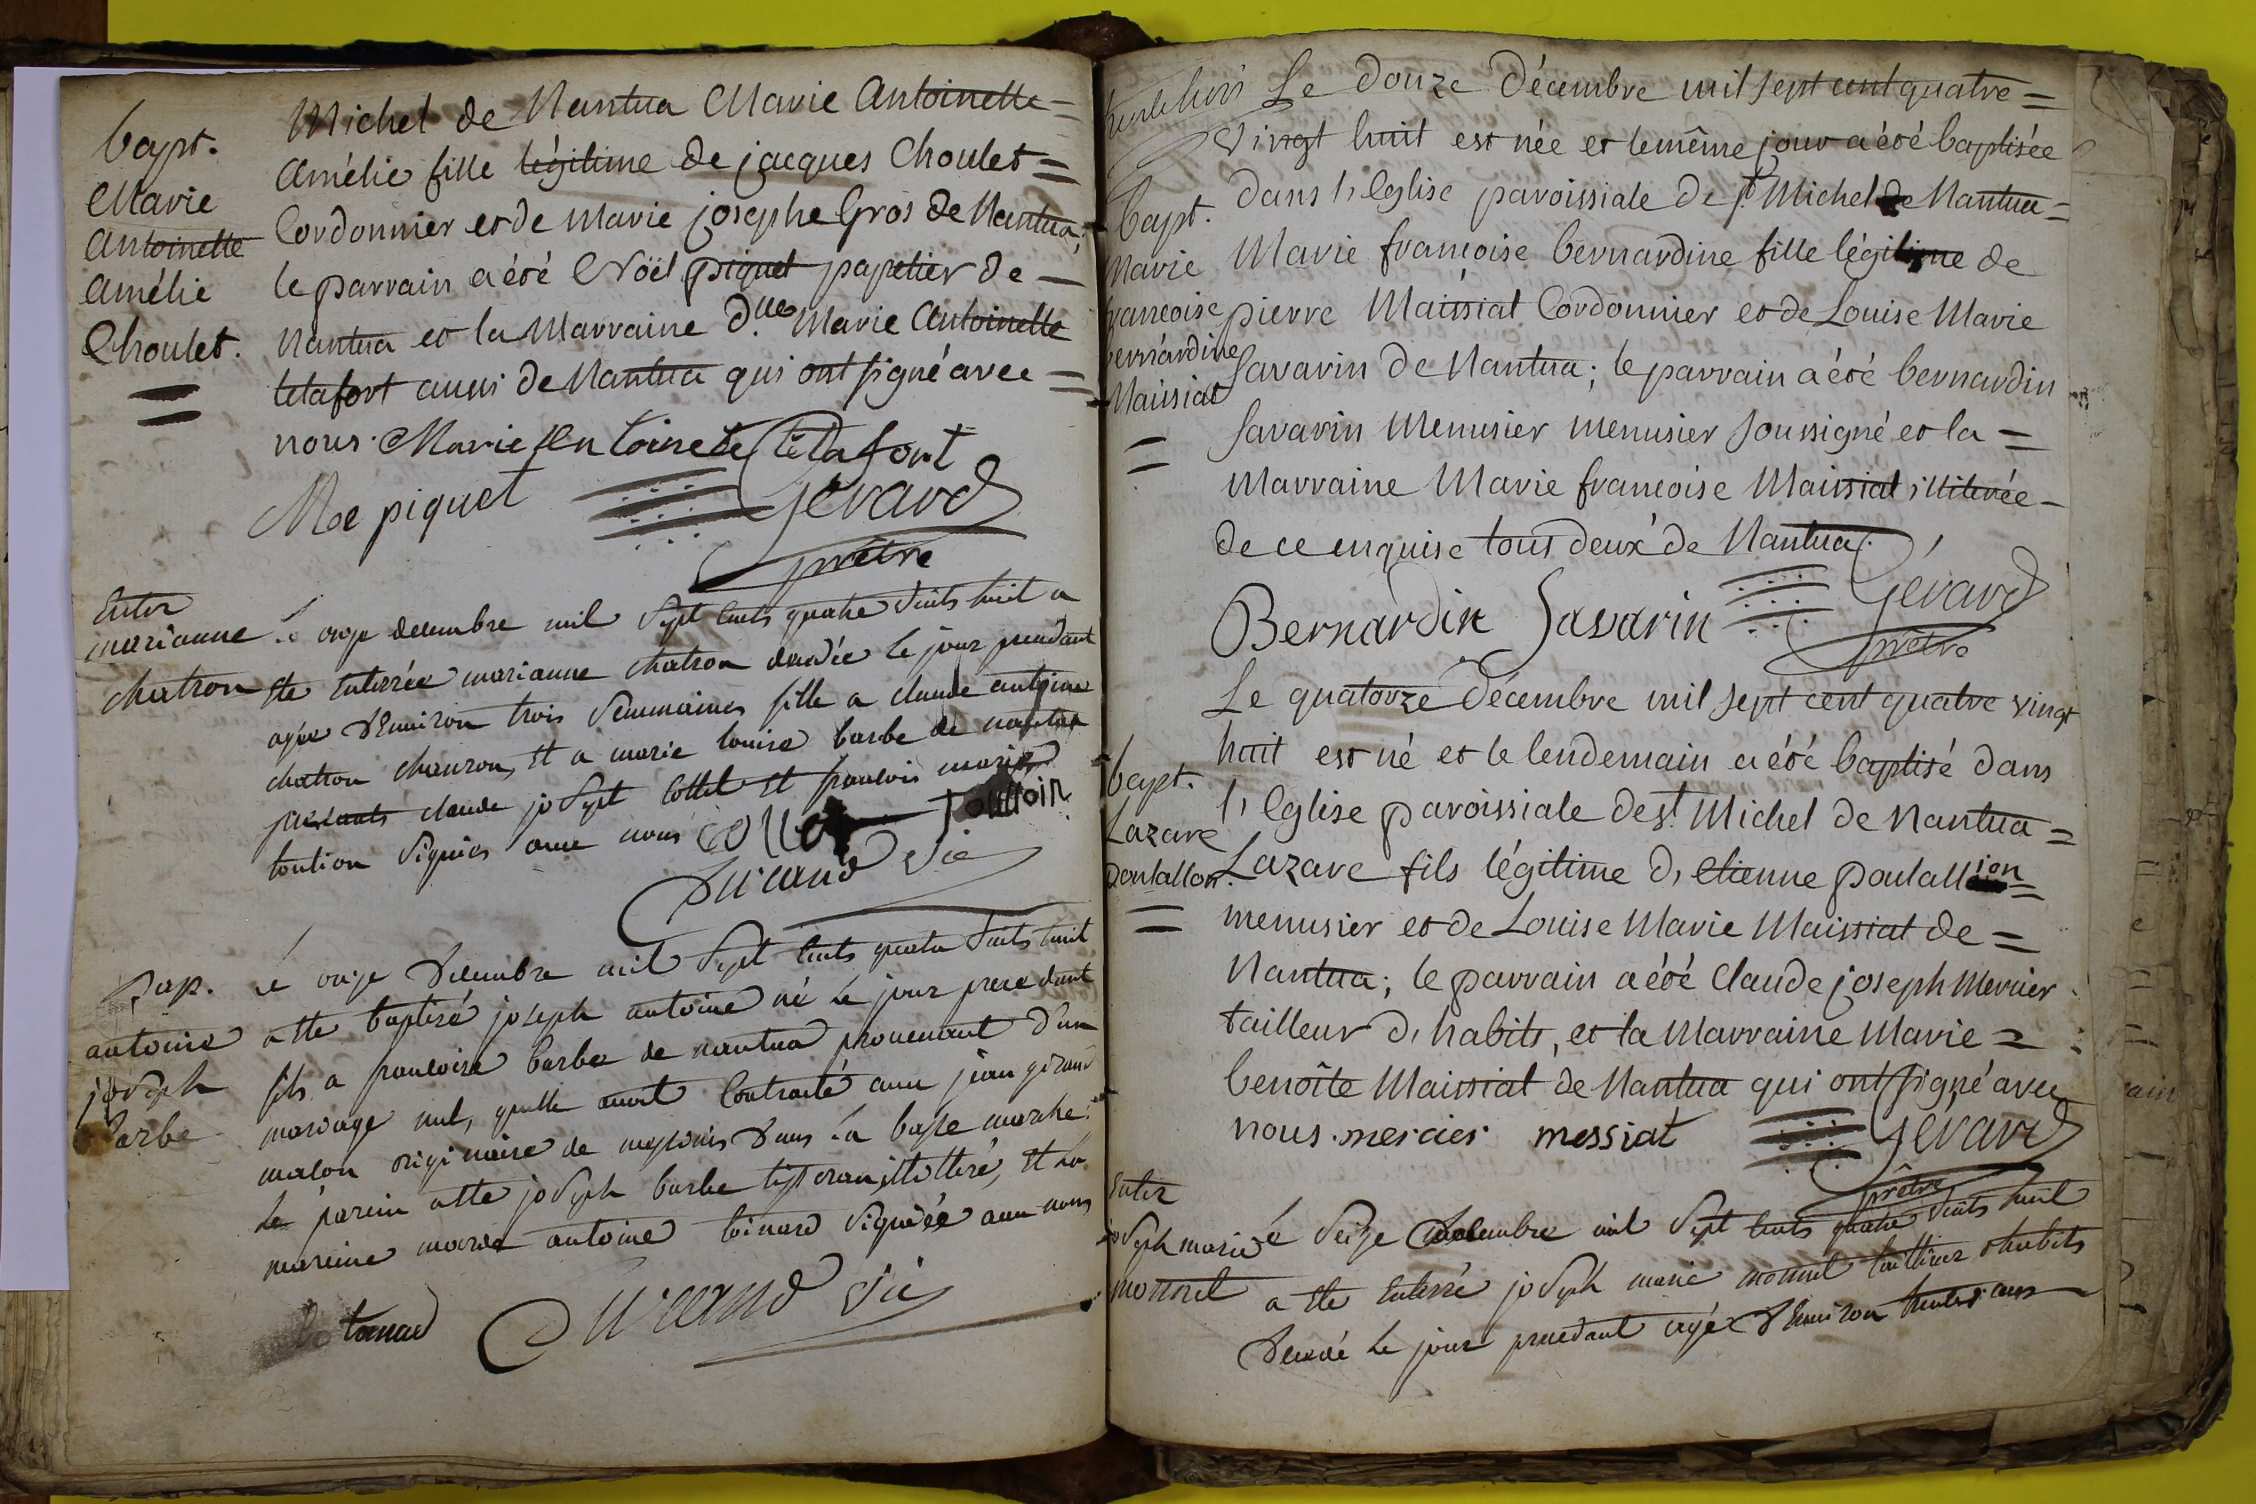 bapt.
Marie
Antoinette
Amélie
Choulet.
Michel de Nantua Marie Antoinette =
Amélie fille légitime de jacques Choulet =
Cordonnier et de Marie josephe Gros de Nantua;
le parrain a été Noël piquet papetier de —
Nantua et la Marraine d.lle Marie Antoinette
létafort aussi de Nantua qui ont signé avec =
nous. Marie Antoinette létafort
Noe piquet Gérard
prêtre
Enter
marianne
chatron
Le onze decembre mil sept cents quatre vints huit a
ete enterrée marianne chatron decedée le jour precedant
agée d'environ trois semmaines fille a claude antoine
chatron et a marie louise barbe de nantua
presants claude joseph collet et francois marie
toution signiés avec nous collet toution
Durand vic
Bap.
antoine
joseph
barbe
Le onze decembre mil sept cents quatre vints huit
a ete baptisé joseph antoine né le jour precedant
fils a francoise barbe de nantua provenant d'un
mariage nul, quelle avoit contracté avec jean girand
malon originaire de dans la basse marche.
Le parein a ete joseph barbe tisseran, illitteré, et la
mareine marie antoine toinard signiée avec nous
toinard Durand vic
trente huis
bapt.
Marie
francoise
bernardine
Maissiat
=
Le douze décembre mil sept cent quatre =
vingt huit est née et le même jour a été baptisée
dans l'Eglise paroissiale de st. Michel de Nantua =
Marie francoise bernardine fille légitime de
pierre Maissiat Cordonnier et de Louise Marie
Savarin de Nantua; le parrain a été bernardin
Savarin Menusier menusier soussigné et la =
Marraine Marie francoise Maissiat illiterée —
de ce enquise tous deux de Nantua.
Bernardin Savarin Gérard
prêtre
bapt.
Lazare
Poutallon.
=
Le quatorze décembre mil sept cent quatre vingt
huit est né et le lendemain a été baptisé dans
l'Eglise paroissiale de st. Michel de Nantua =
Lazare fils légitime d'etienne poutallion =
menusier et de Louise Marie Maissiat de =
Nantua; le parrain a été Claude joseph Mercier
tailleur d'habits, et la Marraine Marie =
benoîte Maissiat de Nantua qui ont signé avec
nous. mercier messiat Gérard
prêtre
Enter
joseph marie
monnet
Le seize decembre mil sept cents quatre vints huit
a ete enterré joseph marie monnet tailleur d'habits
decedé le jour precedant agé d'environ trente ans